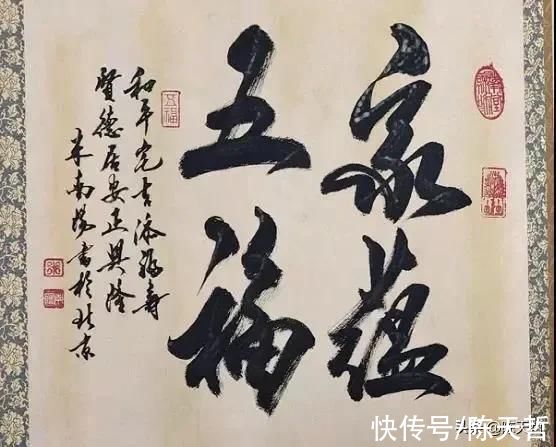 家蕴
五福
五福
和平完吉添福寿
贤德居安正兴隆
米南阳书于北京
快传号/陈天哲